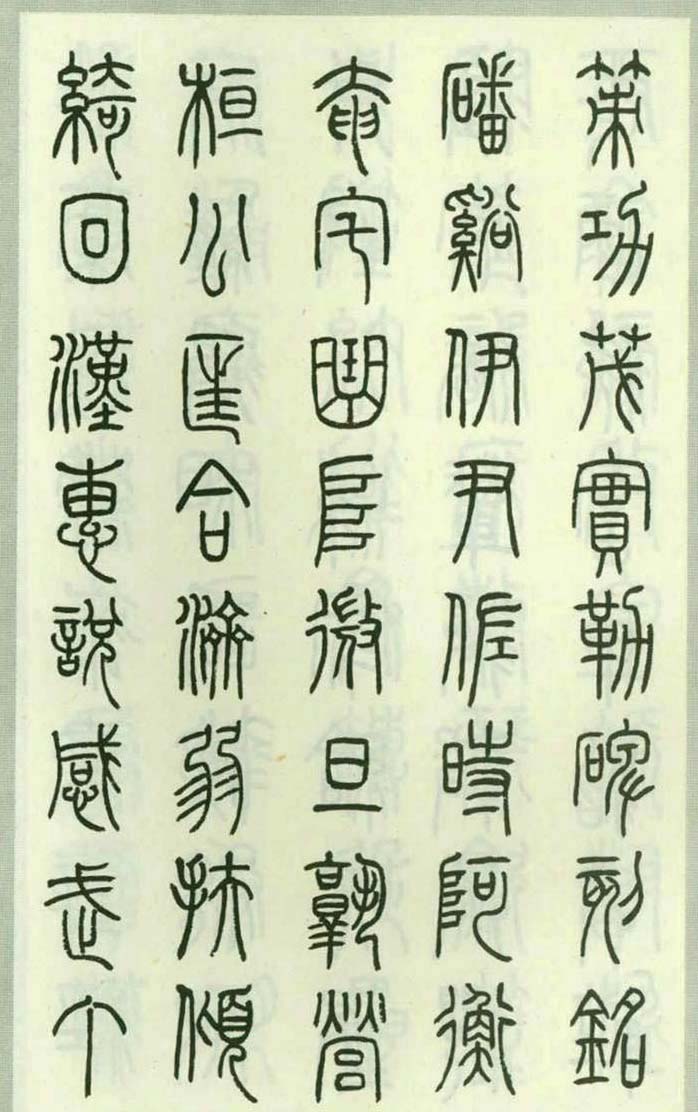 策功茂實勒碑刻銘
磻谿伊尹佐時阿衡
奄宅曲阜微旦孰營
桓公匡合濟弱扶傾
綺回漢惠說感武丁